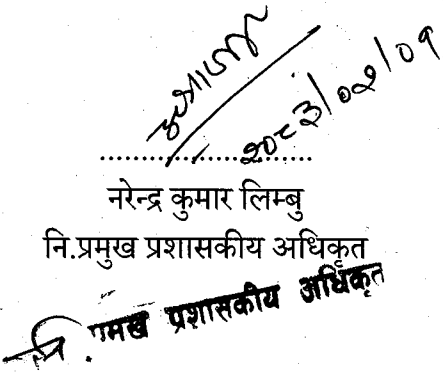 २०८३/०२/०१
नरेन्द्र कुमार लिम्बु
नि.प्रमुख प्रशासकीय अधिकृत
नि. प्रमुख प्रशासकीय अधिकृत